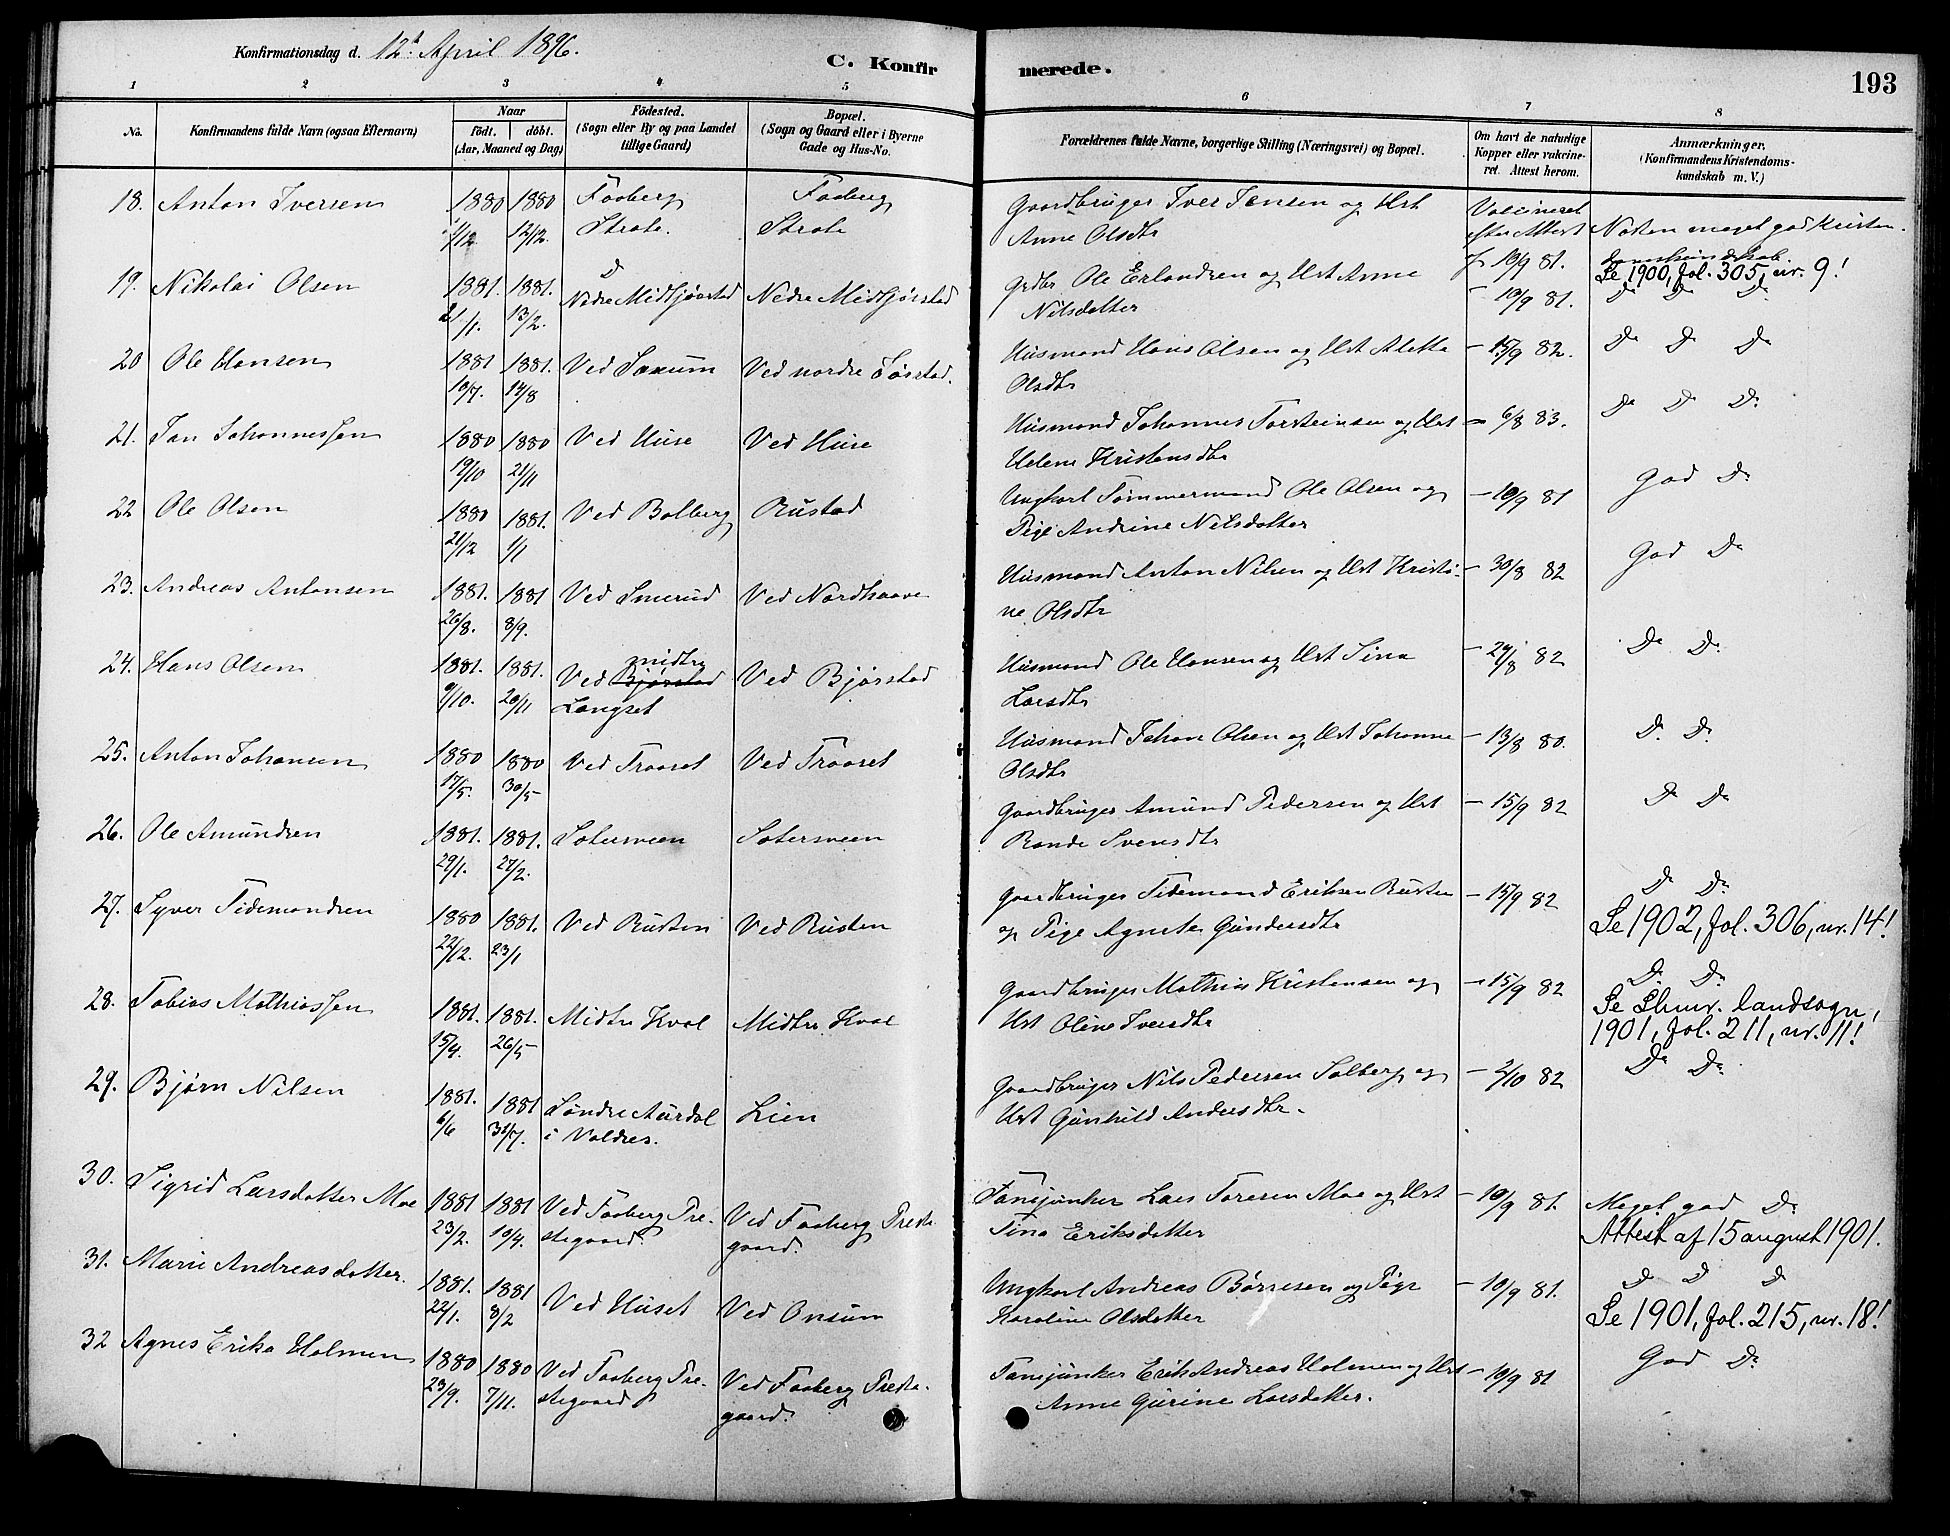 Konfirmationsdag d. 12t April 1896.
C. Konfirmerede.
193
1 2 3 4 5 6 7 8
No.
Konfirmandens fulde Navn (ogsaa Efternavn)
Naar
födt. döbt.
(Aar, Maaned og Dag)
Födested.
(Sogn eller By og paa Landet
tillige Gaard)
Bopæl.
(Sogn og Gaard eller i Byerne
Gade og Hus-No.
Forældrenes fulde Navne, borgerlige Stilling (Næringsvei) og Bopæl.
Om havt de naturlige
Kopper eller vakcine-
ret. Attest herom.
Anmærkninger.
(Konfirmandens Kristendoms-
kundskab m. V.)
18. Anton Iversen 1880 1880 Faaberg Faaberg Gaardbruger Iver Jensen og Hst Vaccineret
1/12. 12/12. Strate. Strate Anne Olsdtr efter Attest Næsten meget god Kristen-
f 10/9 81. domskundskab.
Se 1900, fol. 305, nr. 9!
19. Nikolai Olsen 1881. 1881. Do Nedre Midtfjørstad Nedre Midtfjørstad Grdbr Ole Erlandsen og Hst Anne - 10/9 81. Do Do Do
21/1. 13/2. Nilsdatter
20 Ole Hansen 1881 1881. Ved Saxum Ved nordre Jørstad. Husmand Hans Olsen og Hst Aletta - 15/9 82. Do Do Do
10/7. 14/8 Olsdtr
21. Jan Johannessen 1880 1880 Ved Huse Ved Huse Husmand Johannes Torsteinsen og Hst - 6/8 83. Do Do Do
19/10 21/11 Helene Kristensdtr
22 Ole Olsen 1880 1881. Ved Bolberg Rustad Ungkarl Tømmermand Ole Olsen og - 10/9 81 God Do
21/12 1/1 Pige Andrine Nilsdatter
23. Andreas Antonsen 1881. 1881 Ved Smerud Ved Nordhaave Husmand Anton Nilsen og Hst Kristi- - 30/8 82 God Do
26/8. 8/9. ne Olsdtr
24. Hans Olsen 1881. 1881. Ved midtre Bjørstad Ved Bjørstad Husmand Ole Hansen og Hst Sina - 29/8 82 Do Do
9/10. 20/11 Langset Larsdtr
25. Anton Johansen 1880 1880 Ved Traaset Ved Traaset Husmand Johan Olsen og Hst Johanne - 13/8 80. Do Do
17/5. 30/5 Olsdtr
26. Ole Amundsen 1881. 1881. Soterveen Soterveen Gaardbruger Amund Pedersen og Hst - 15/9 82 Do Do
29/1. 27/2. Rande Svensdtr
27. Syver Tidemandsen 1880 1881. Ved Rusten Ved Rusten Gaardbruger Tidemand Eriksen Rusten - 15/9 82 Do Do
22/12. 23/1 og Pige Agnete Gundersdtr Se 1902, fol. 306, nr. 14!
28. Tobias Mathiassen 1881. 1881. Midtre Kval Midtre Kval Gaardbruger Mathias Kristensen og - 15/9 82 Do Do
15/4. 26/5 Hst Oline Iversdtr Se Lhmr. landsogn,
1901, fol. 211, nr. 11!
29. Bjørn Nilsen 1881. 1881 Søndre Aurdal Lien Gaardbruger Nils Pedersen Solberg og - 2/10 82 Do Do
6/6 31/7. i Valdres. Hst Gunhild Andersdtr.
30. Sigrid Larsdatter Moe 1881 1881 Ved Faaberg Pre- Ved Faaberg Preste- Fanejunker Lars Toresen Moe og Hst - 10/9 81. Meget god Do
23/2. 10/4. stegaard. gaard. Tina Eriksdatter Attest af 15 august 1901.
31. Marie Andreasdatter. 1881. 1881 Ved Huset Ved Onsum Ungkarl Andreas Børresen og Pige - 10/9 81. Do Do Do
22/1. 8/2 Karoline Olsdatter Se 1901, fol. 215, nr. 18!
32 Agnes Erika Holmen 1880 1880 Ved Faaberg Pre- Ved Faaberg Preste- Fanejunker Erik Andreas Holmen og Hst - 10/9 81 God Do
23/9. 7/11. stegaard gaard. Anne Gurine Larsdatter.